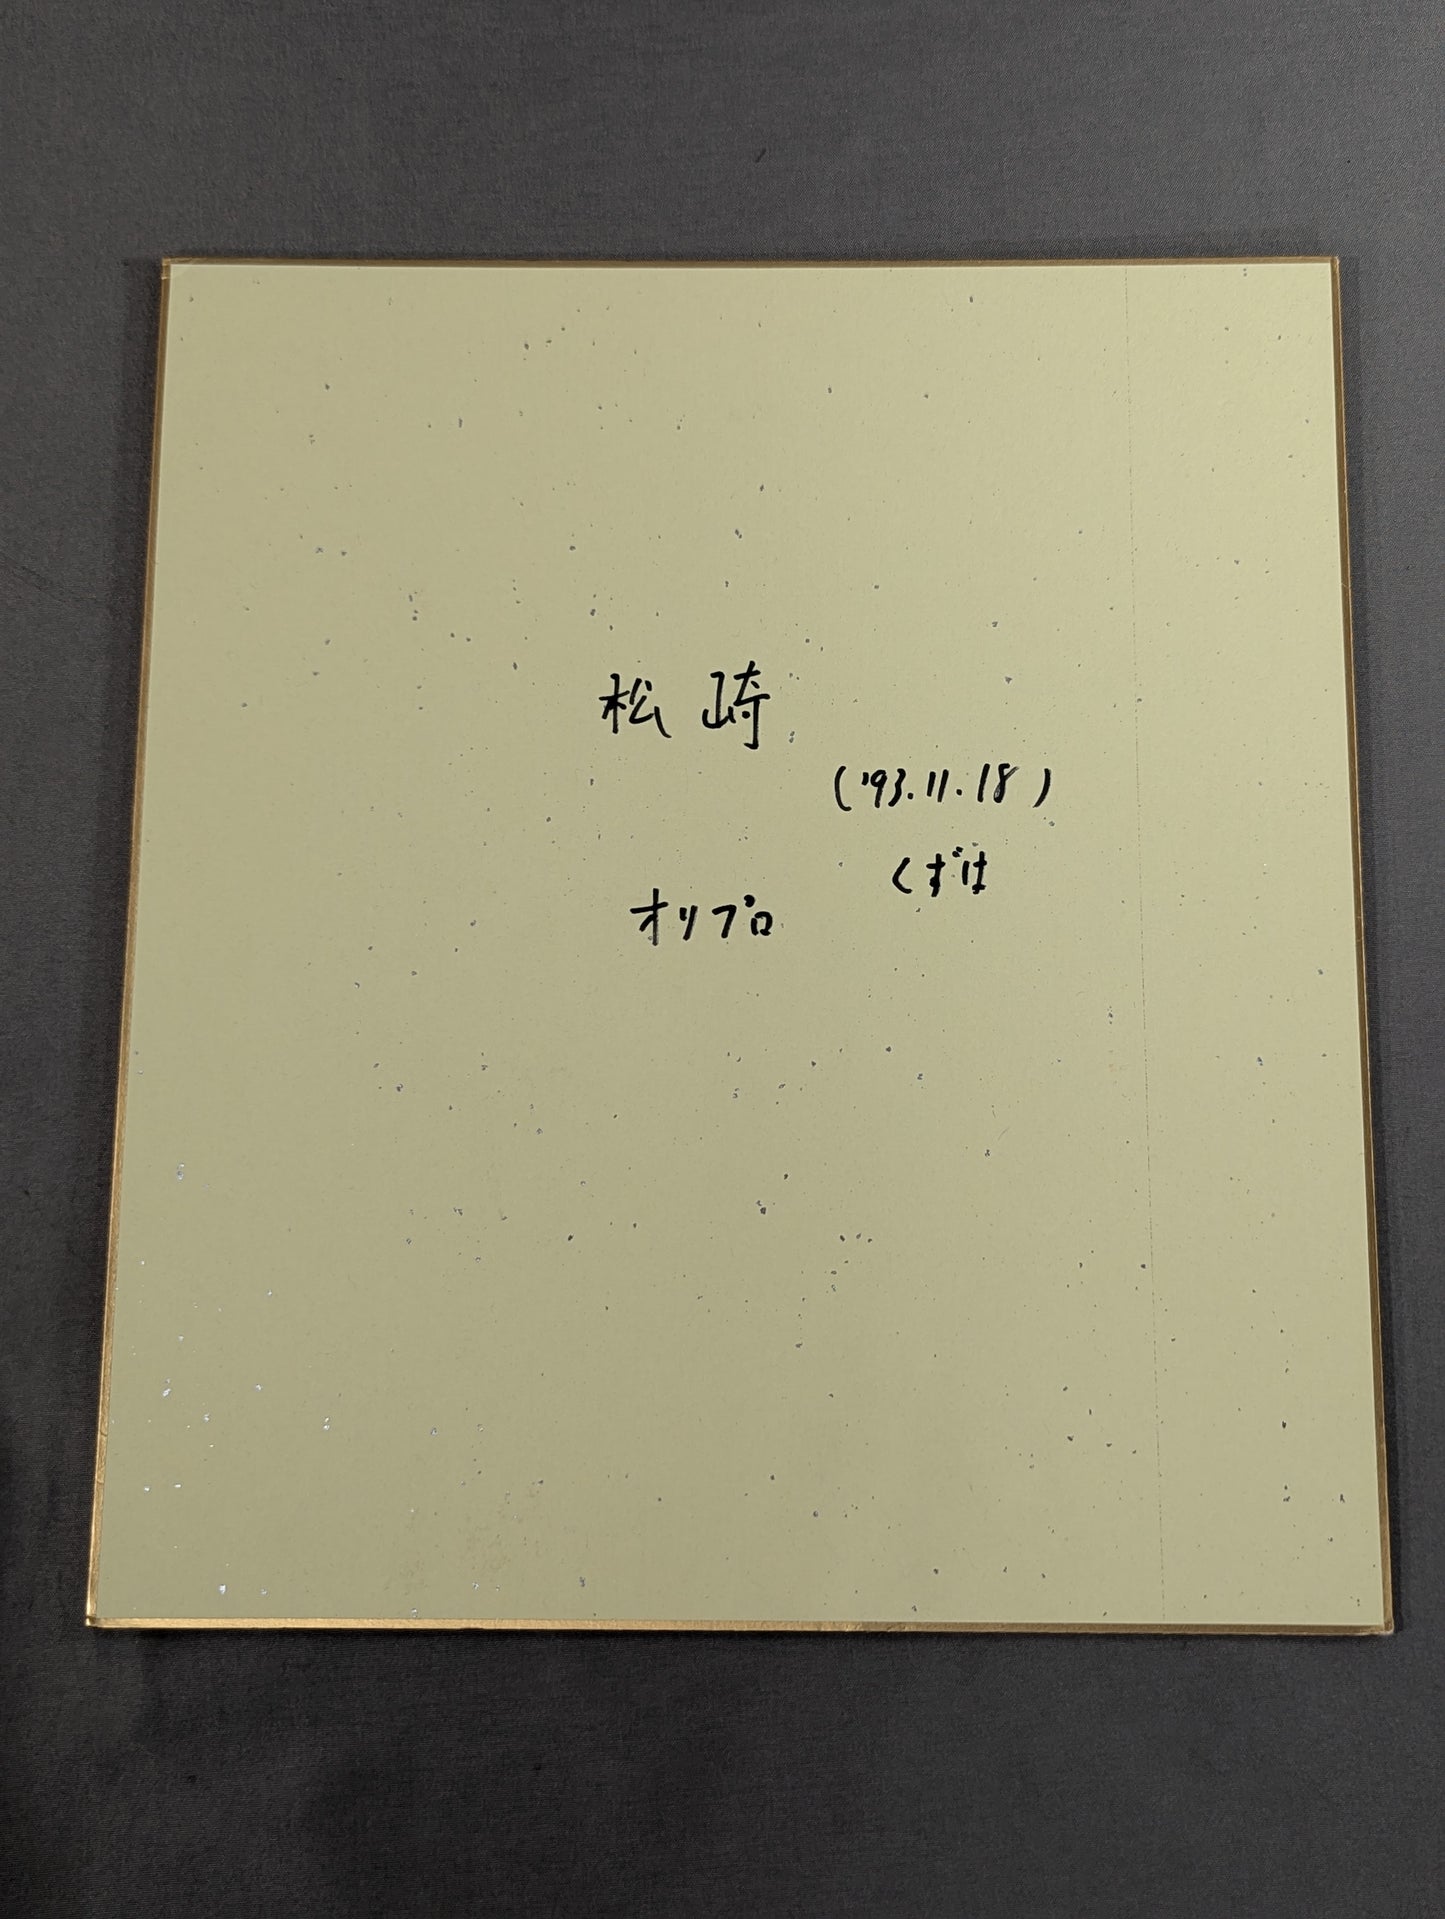 松崎
('93.11.18)
くずは
オリプロ